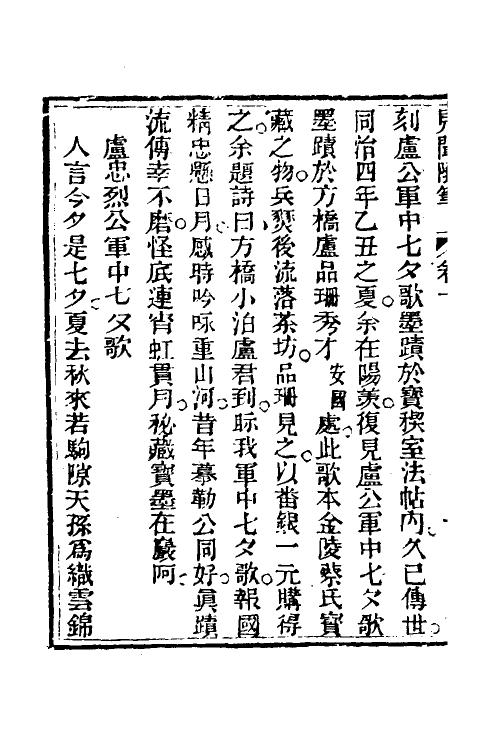 見聞隨筆 卷一
刻盧公軍中七夕歌墨蹟於寶稧室法帖內久已傳世
同治四年乙丑之夏余在陽羨復見盧公軍中七夕歌
墨蹟於方橋盧品珊秀才安國處此歌本金陵蔡氏寶
藏之物兵燹後流落茶坊品珊見之以番銀一元購得
之余題詩曰方橋小泊盧君到眎我軍中七夕歌報國
精忠懸日月感時吟咏重山河昔年摹勒公同好眞蹟
流傳幸不磨怪底連宵虹貫月秘藏寶墨在巖阿
盧忠烈公軍中七夕歌
人言今夕是七夕夏去秋來若駒隙天孫爲織雲錦